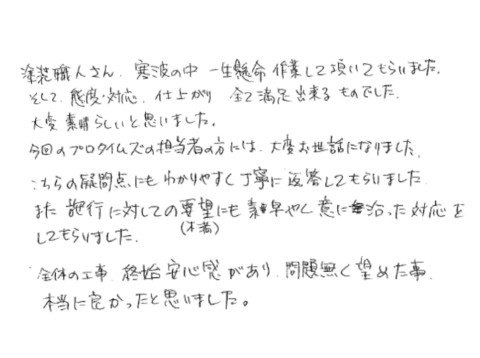 塗装職人さん、寒波の中 一生懸命 作業して頂いてもらいました。
そして、態度・対応、仕上がり 全て満足出来る ものでした。
大変 素晴らしいと思いました。
今回のプロタイムズの担当者の方には、大変お世話になりました。
こちらの疑問点にも わかりやすく丁寧に 返答してもらいました
また 施行に対しての要望にも 素早やく意に沿った対応を
してもらいました。
全体の工事、終始 安心感があり、問題無く 望めた事、
本当に良かったと思いました。